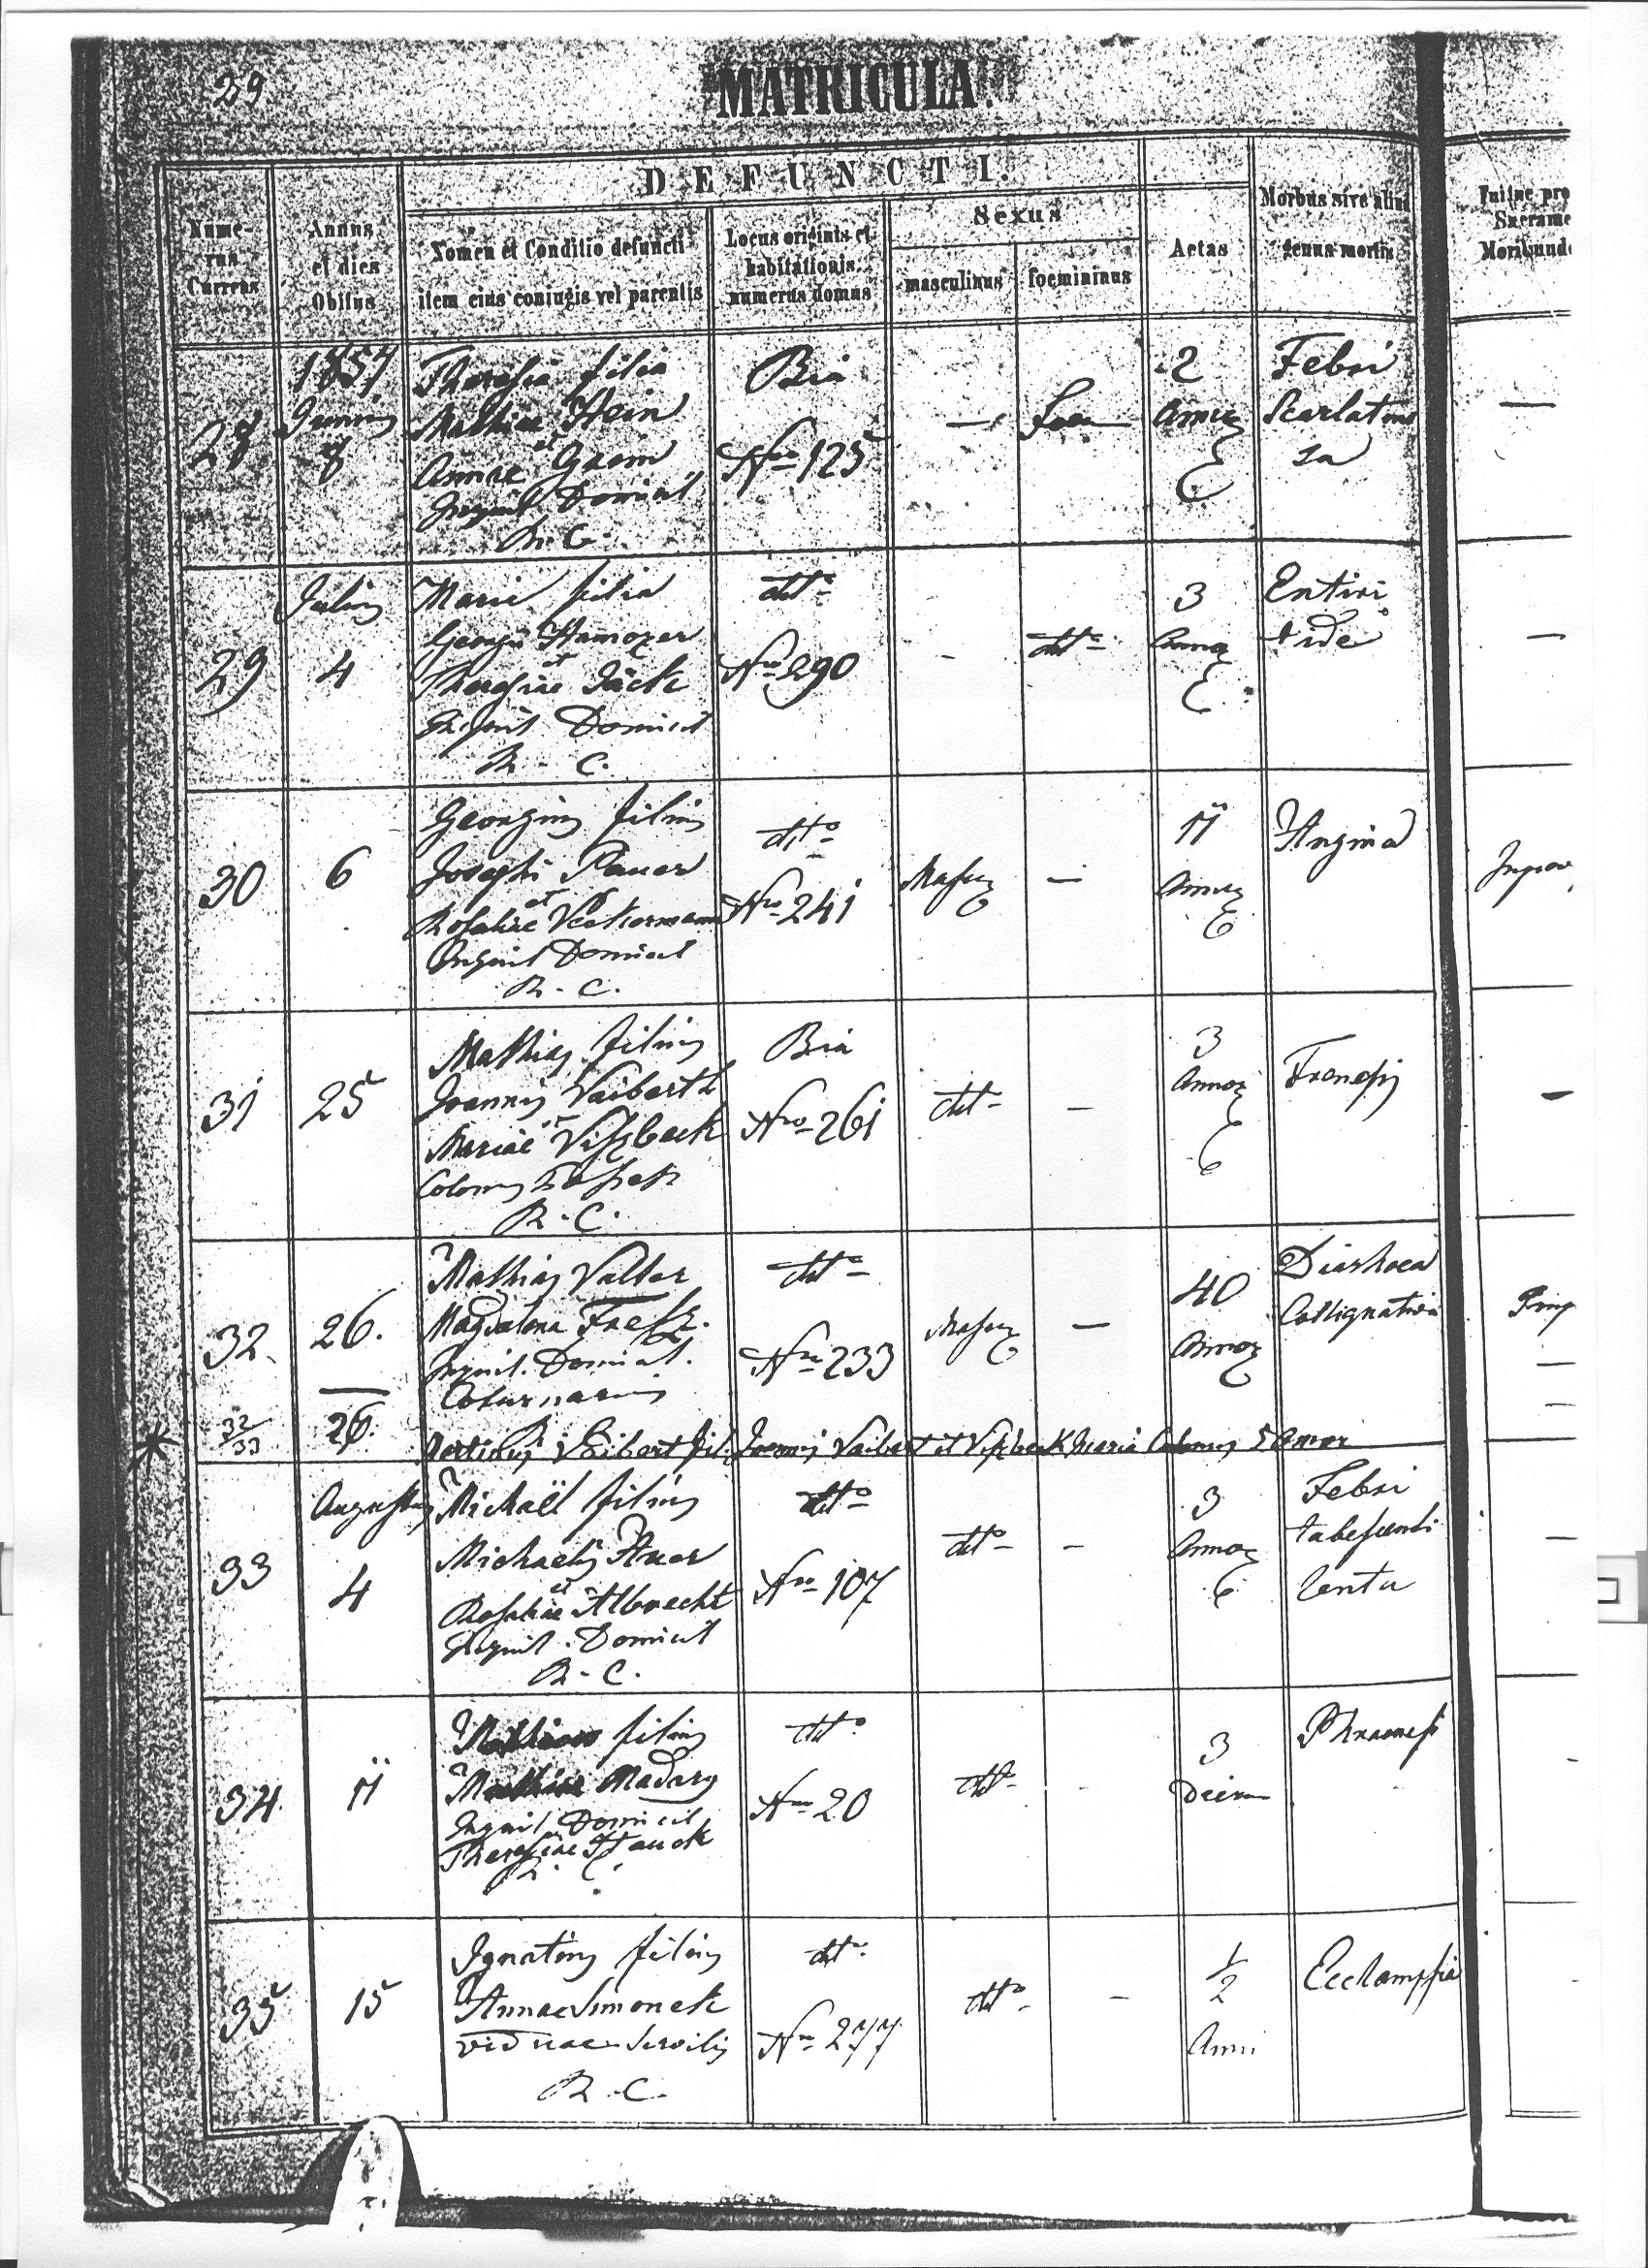 29
MATRICULA.
DEFUNCTI.
Numerus Currens
Annus et dies Obitus
Nomen et Conditio defuncti item eius coniugis vel parentis
Locus originis et habitationis, numerus domus
Sexus
masculinus
foemininus
Aetas
Morbus sive aliud genus mortis
28
1857
Junius
8
Theresia filia
Mathiae Hein
et
Annae Greim
Inquil Domicil
R. C.
Bia
Nro 125
—
Foem
2
Annor
Febri
Scarlatino
sa
—
29
Julius
4
Maria filia
Georgii Hamozer
et
Theresiae Jäck
Inquil Domicil
R. C.
detto
Nro 290
-
detto
3
Annor
Entiri
tide
—
30
6
Georgius filius
Josephi Pauer
et
Rosaliae Veckermann
Inquil Domicil
R. C.
detto
Nro 241
Mascu
—
11
Annor
Angina
31
25
Mathias filius
Joannis Vaiberth
et
Mariae Viszbeck
Colonus
R. C.
Bia
Nro 261
det
-
3
Annor
Frenesis
-
32.
26.
Mathias Valter
Magdalena Fresz.
Inquil. Domicil.
Coturnarius
detto
Nro 233
Mascu
—
40
Annor
Diarhoea
Colliquativa
32/33
26.
Martinus Vaibert fil. Joannis Vaibert et Viszbeck Maria Colonus 5 Annor
33
Augustus
4
Michaël filius
Michaelis Auer
et
Rosaliae Albrecht
Inquil. Domicil
R. C.
detto
Nro 107
det
-
3
Annor
Febri
tabescenti
lenta
—
34.
11
filius
Madary
Inquil Domicil
Theresiae Hauck
R. C.
detto
Nro 20
detto
-
3
Dierum
Phraenesi
-
35
15
Ignatius filius
Annae Simonek
viduae servilis
R. C.
detto
Nro 277.
detto
-
1/2
Anni
Ecclampsia